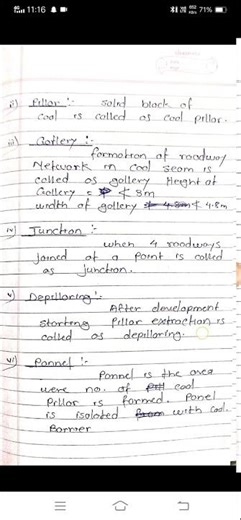 11:16 71%
ii) Pillar :- solid block of
coal is called as coal pillar.
iii) Gallery :-
formation of roadway
Network in coal seam is
called as gallery Height of
Gallery = ≮ 3m
width of gallery ≮ 4.8m
iv) Junction :-
when 4 roadways
joined at a point is called
as junction.
v) Depillaring :-
After development
starting pillar extraction is
called as depillaring.
vi) Pannel :-
Pannel is the area
were no. of coal
Pillar is formed. Panel
is isolated with coal.
Barrier